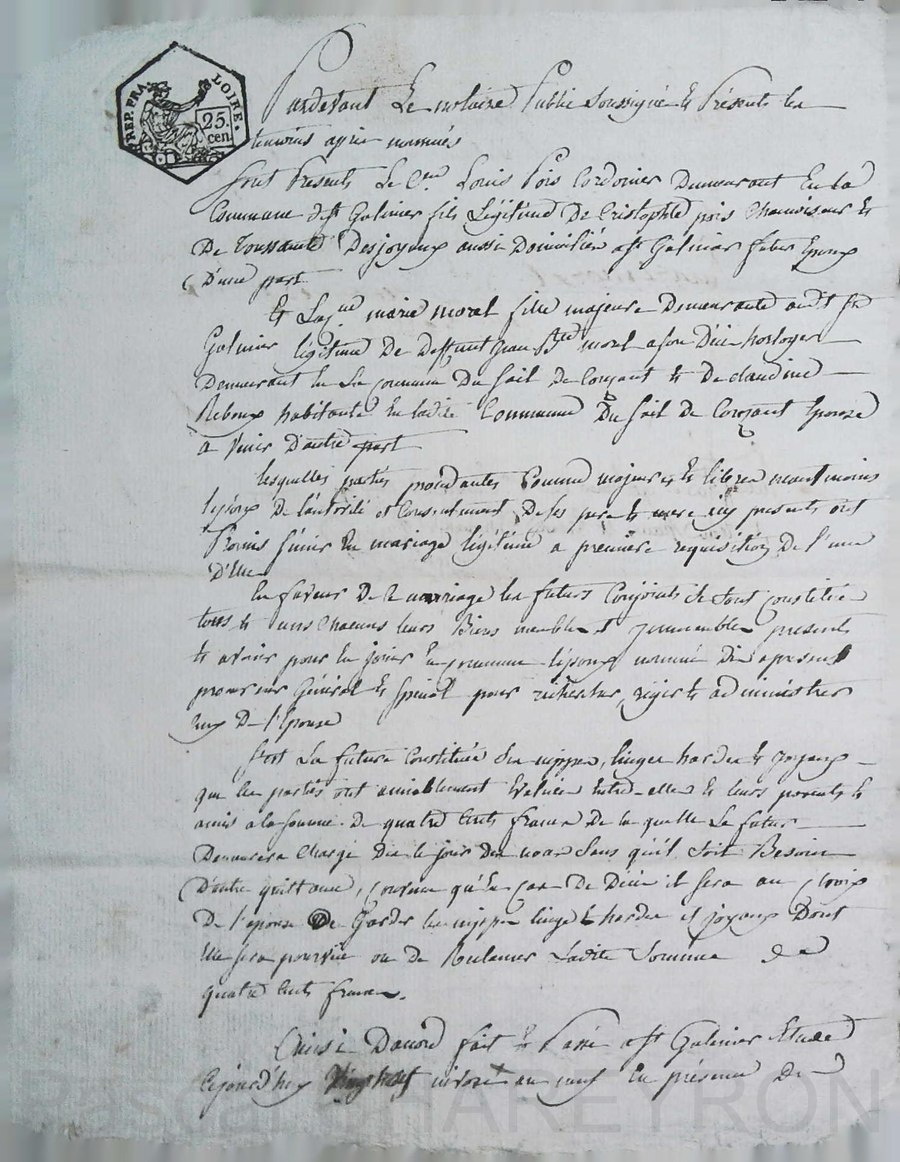 REP. FRA. LOIRE.
25. cen.
Pardevant Le notaire Public soussigné & Présents les
temoins après nommés
sont Presents Le C.en Louis Pois Cordonier Demeurant En la
Commune de St Galmier fils Légitime De Cristophle pois Chanvreur &
De Toussainte Desjoyeux aussi Domiciliés a St Galmier futur Epoux
D'une part
& La C.ne marie morel fille majeure Demeurante audit St
Galmier légitime De Deffunt Jean B.te morel a son Décès horloger
Demeurant En La Commune Du fail De Couzant & De Claudine
Reboux habitante En ladite Commune Du fail de Couzant Epouse
a Venir D'autre part
Lesquelles parties procedantes Comme majeures & libres neantmoins
l'epoux De l'autorité et Consentement De ses pere & mere icy presents ont
Promis s'unir En mariage légitime a premiere requisition De l'une
D'Elle
En faveur De Ce mariage les futurs Conjoints se sont Constitués
tous & uns Chacuns leurs Biens meubles et immeubles presents
& avenir pour En jouir En commun l'epoux nommé Dès apresent
procureur Général & spécial pour rechercher, régir & administrer
ceux De l'Epouse
sest La future Constituée Ses nippes, linges hardes & joyaux
que les parties ont amiablement Evalués Entre-elles & leurs parents &
amis a la somme De quatre Cents francs De la quelle Le futur
Demeurera Chargé Dès le jour Des noces Sans qu'il Soit Besoin
D'autre quittance, Convenu qu'En Cas De Décès il sera au choix
De l'epouse De Garder les nippes linge & hardes et joyaux Dont
Elle sera pourvue ou De Reclamer Ladite Somme de
quatre Cents francs.
Ainsi Dacord fait & Passé a St Galmier Etude
Cejourd'huy nivose an neuf En présence De
Pascal CHAREYRON